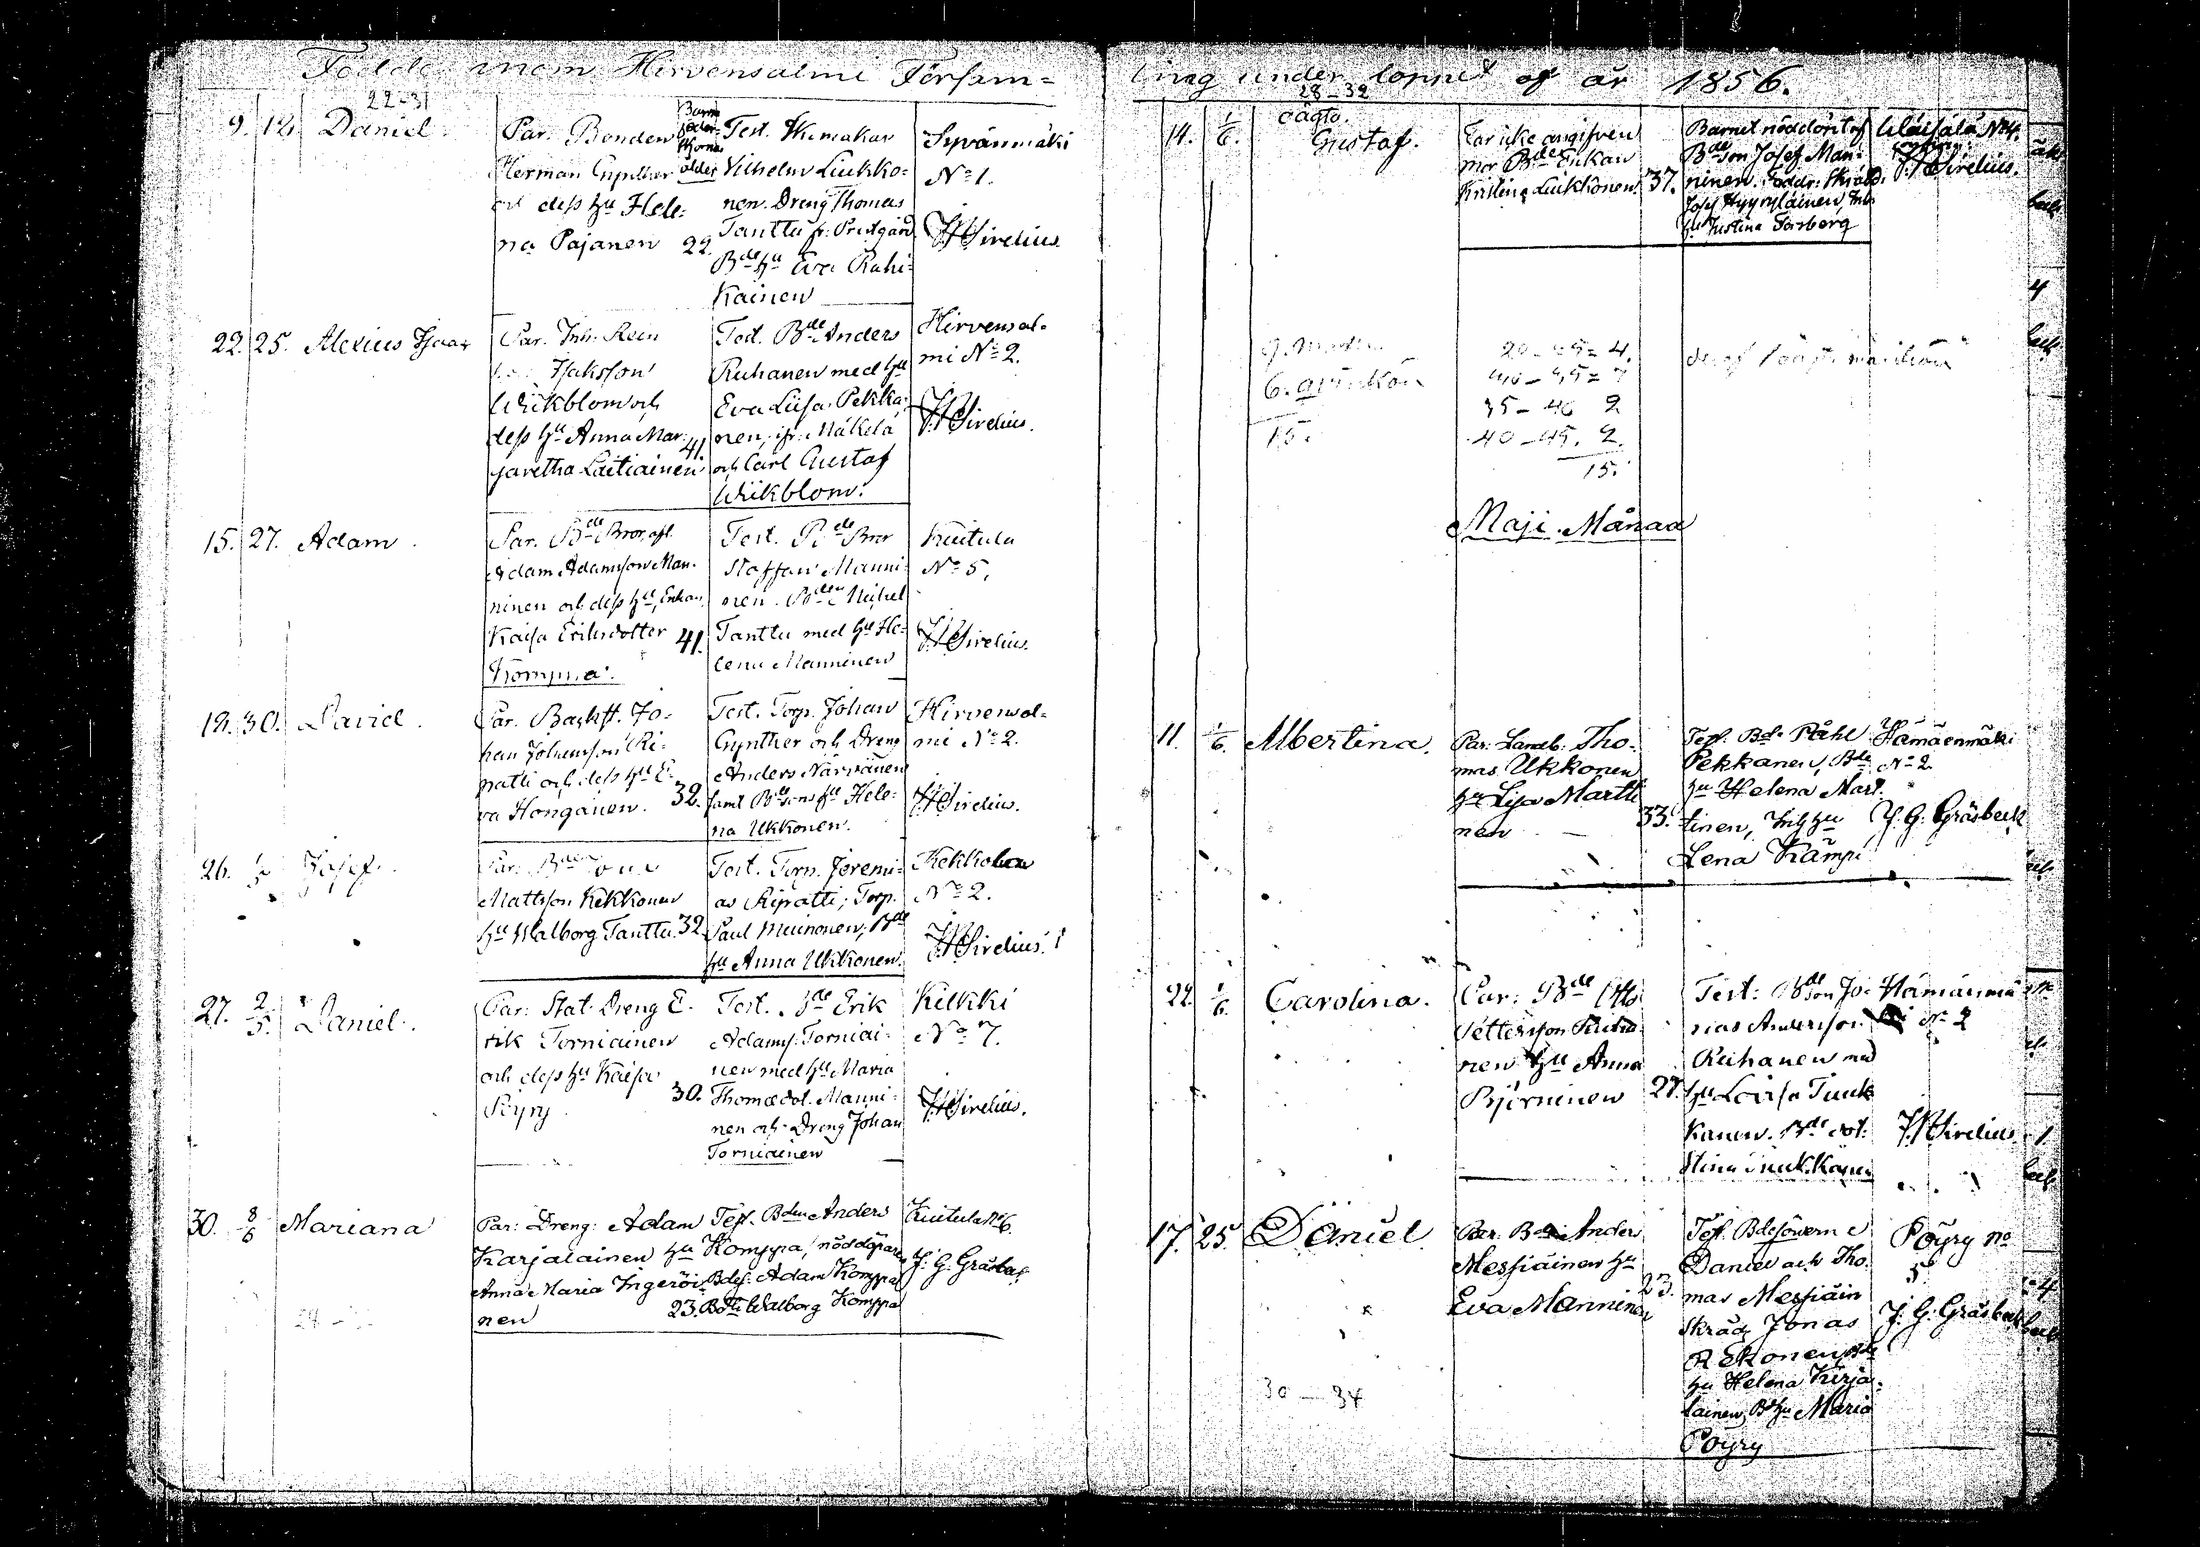 Födde inom Hirvensalmi Försam=
22-31
9. 18. Daniel
Par. Bonden
Herman Gynther
och dess hu Hele=
na Pajanen 22.
Barna
föder-
skornas
ålder
Test. Skomakar
Vilhelm Luukko=
nen. Dreng Thomas
Tanttu fr. Prestgård
Bde hu Eva Ruhi=
kainen
Syvänmäki
No 1.
Sirelius
22. 25. Alexius Isaac
Par. Inh.
Isaksson
Wiikblom och
dess hu Anna Mar= 41.
garetha Laitiainen
Test. Bde Anders
Ruhanen med hu
Eva Lisa Pekka=
nen, fr. Mäkelä
och Carl Gustaf
Wiikblom.
Hirvensal=
mi No 2.
Sirelius.
15. 27. Adam
Par. Bde Bror, afl.
Adam Adamsson Man=
ninen och dess hu, Enkan
Kaisa Eriksdotter 41.
Komppa.
Test. Bde Bror
Staffan Manni=
nen. Bden Michel
Tanttu med hu He=
lena Manninen
Kuitula
No 5.
Sirelius.
18. 30. David
Par. Backst. Jo=
han Johansson Ri=
patti och dess hu E=
va Honganen. 32.
Test. Torp. Johan
Gynther och Dreng
Anders Narvänen
samt Bdesons hu Hele=
na Ukkonen.
Hirvensal=
mi No 2.
Sirelius.
26. 1/5 Josef
Par. Bden
Mattsson Kekkonen
hu Walborg Tanttu. 32.
Test. Torp. Jeremi=
as Ripatti; Torp.
Paul Muinonen; Bde
hu Anna Ukkonen.
Kekkola
No 2.
Sirelius.
27. 2/5 Daniel.
Par. Stat. Dreng E=
rik Torniainen
och dess hu Kaisa 30.
Pöyry
Test. Bde Erik
Adamss. Torniai=
nen med hu Maria
Thomædot. Manni=
nen och Dreng Johan
Torniainen
Kilkki
No 7.
Sirelius.
30. 8/5 Mariana
Par: Dreng: Adam
Karjalainen hu
Anna Maria Ingeröi=
nen 23.
Test. Bden Anders
Komppa, nöddöparen
Bdes: Adam Komppa
Walborg Komppa
Kuitula No 6.
J. G. Gräsbeck
ling under loppet af år 1856.
28-32
oägta.
14. 1/6. Gustaf.
Far icke angifven
mor Bde Enkan
Kristina Luukkonen. 37.
Barnet nöddöpt af
Bdeson Josef Man=
ninen. Faddr: Skrädd.
Josef Hyyryläinen, Inh.
hu Justina Forsberg
No 4.
Sirelius.
15.
40-45. 2.
15.
Maji Månad
11. 1/6. Albertina.
Par: Landb. Tho=
mas Ukkonen
hu Lisa Martti
nen 33.
Test. Bde Påhl
Pekkanen, Bde
hu Helena Mart=
tinen, Inh hu
Lena Kämpi
Hämäenmäki
No 2.
J. G. Gräsbeck
22. 1/6. Carolina.
Par: Bde Otto
Pettersson Ruha=
nen hu Anna
Björninen 27.
Test: Bdeson Jo=
nas Andersson
Ruhanen med
hu Lovisa Tuuk
kanen. Bde dot.
Stina Tuukkanen
Hämäenmä
ki No 2
Sirelius.
17. 25. Daniel.
Par. Bden Anders
Messiäinen hu
Eva Manninen 23.
Test. Bdesönerne
Daniel och Tho=
mas Messiäin
Skrädd. Jonas
Rekonen, Bde
hu Helena Kirja=
lainen, Bde hu Maria
Pöyry
Pöyry no
5
J. G. Gräsbeck
30-34